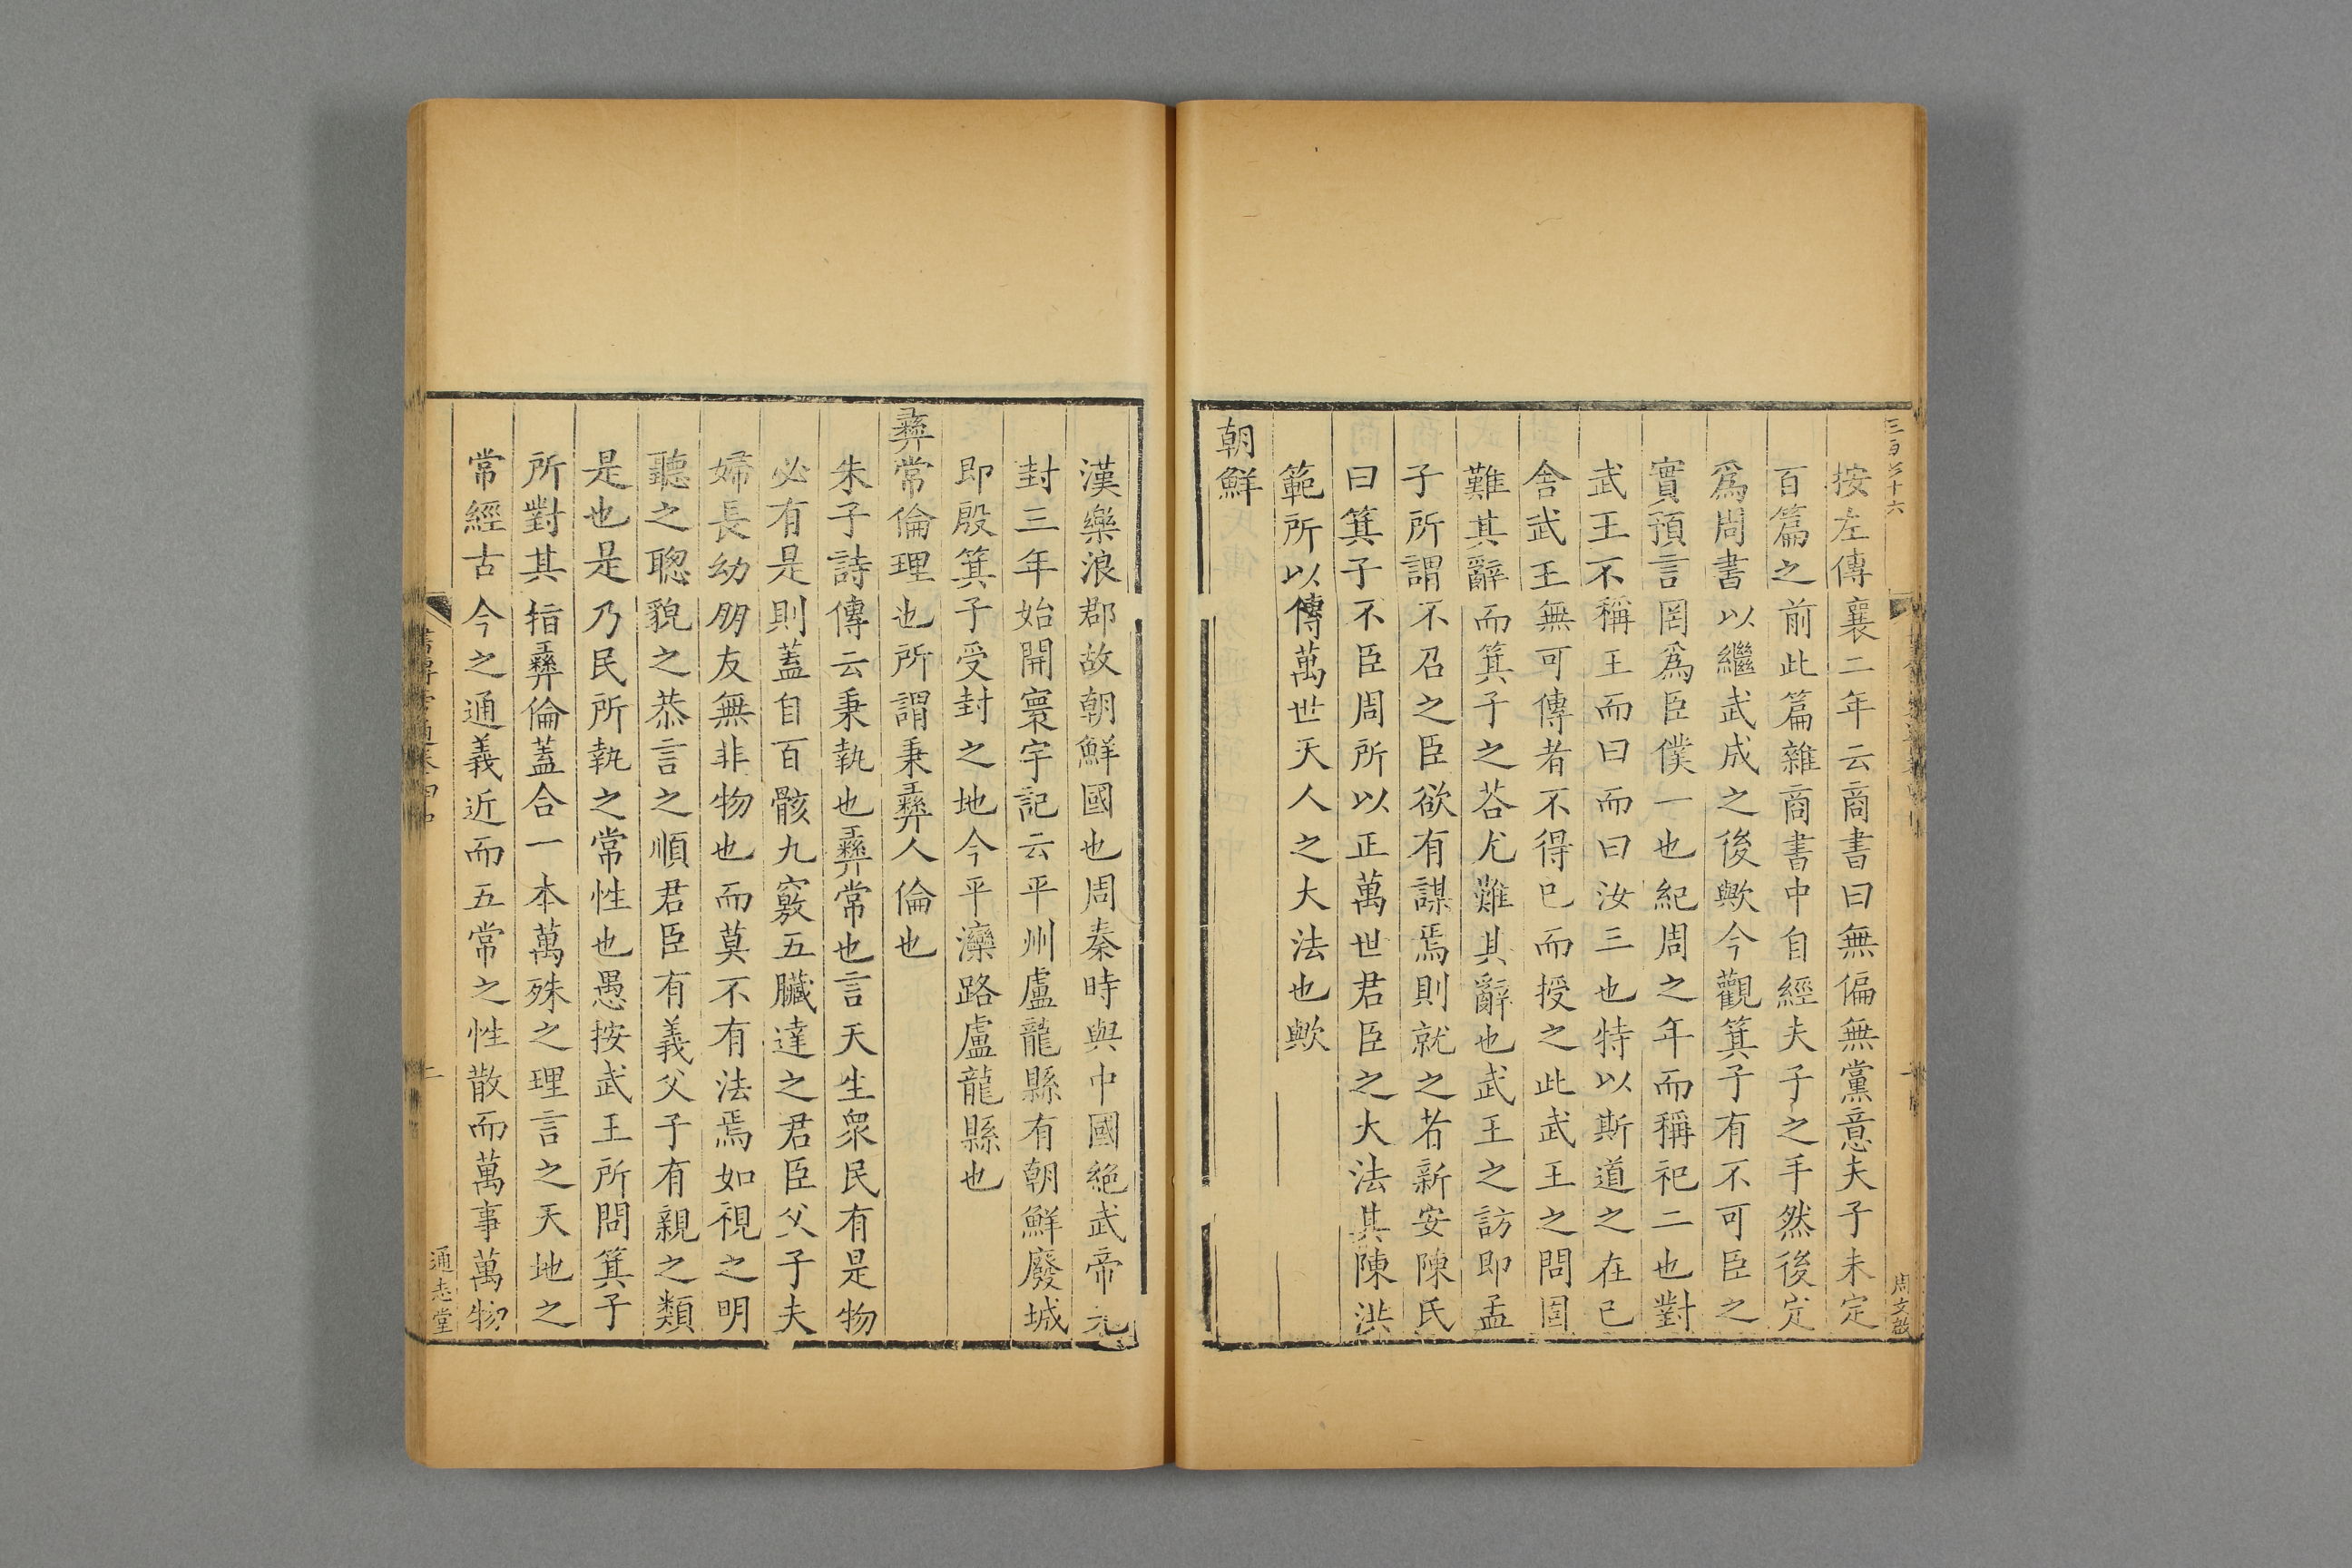 按左傳襄二年云商書曰無偏無黨意夫子未定
百篇之前此篇雜商書中自經夫子之手然後定
爲周書以繼武成之後歟今觀箕子有不可臣之
實預言罔爲臣僕一也紀周之年而稱祀二也對
武王不稱王而曰而曰汝三也特以斯道之在已
舍武王無可傳者不得已而授之此武王之問固
難其辭而箕子之荅尤難其辭也武王之訪即孟
子所謂不召之臣欲有謀焉則就之者新安陳氏
曰箕子不臣周所以正萬世君臣之大法其陳洪
範所以傳萬世天人之大法也歟
朝鮮
周文啟
漢樂浪郡故朝鮮國也周秦時與中國絕武帝元
封三年始開寰宇記云平州盧龍縣有朝鮮廢城
即殷箕子受封之地今平灤路盧龍縣也
彝常倫理也所謂秉彝人倫也
朱子詩傳云秉執也彝常也言天生衆民有是物
必有是則蓋自百骸九竅五臟達之君臣父子夫
婦長幼朋友無非物也而莫不有法焉如視之明
聽之聰貌之恭言之順君臣有義父子有親之類
是也是乃民所執之常性也愚按武王所問箕子
所對其指彝倫蓋合一本萬殊之理言之天地之
常經古今之通義近而五常之性散而萬事萬物
二
通志堂